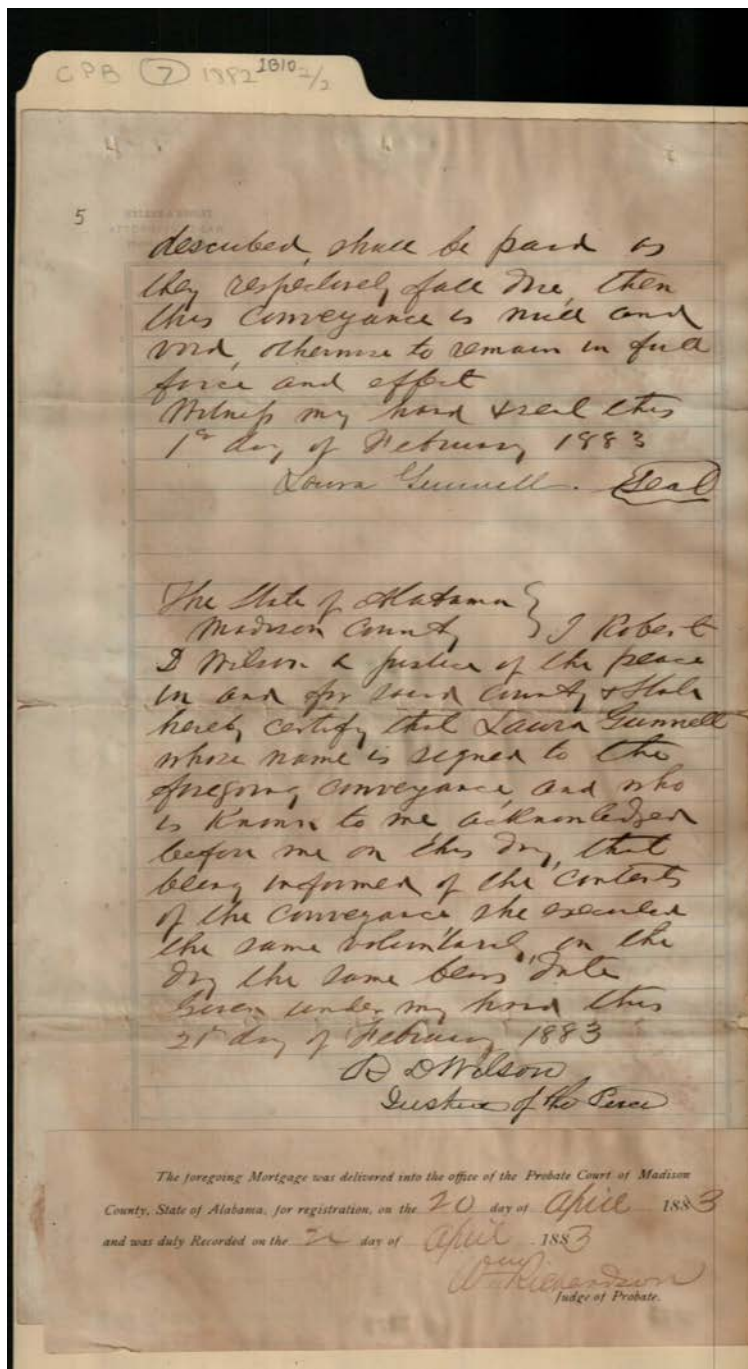 CPB 7 1882 1810 2/2
5
described, shall be paid as
they respectively fall due, then
this conveyance is null and
void, otherwise to remain in full
force and effect
Witness my hand & seal this
1st day of February 1883
Laura Gunnell. Seal
The State of Alabama
Madison County } I Robert
D Wilson a justice of the peace
in and for said County & State
hereby certify that Laura Gunnell
whose name is signed to the
foregoing conveyance, and who
is Known to me, acknowledged
before me on this day, that
being informed of the contents
of the conveyance she executed
the same voluntarily on the
day the same bears date
Given under my hand this
day of February 1883
R D Wilson
Justice of the Peace
The foregoing Mortgage was delivered into the office of the Probate Court of Madison
County, State of Alabama, for registration, on the 20 day of April 1883
and was duly Recorded on the day of April 1883
Wm Richardson
Judge of Probate.